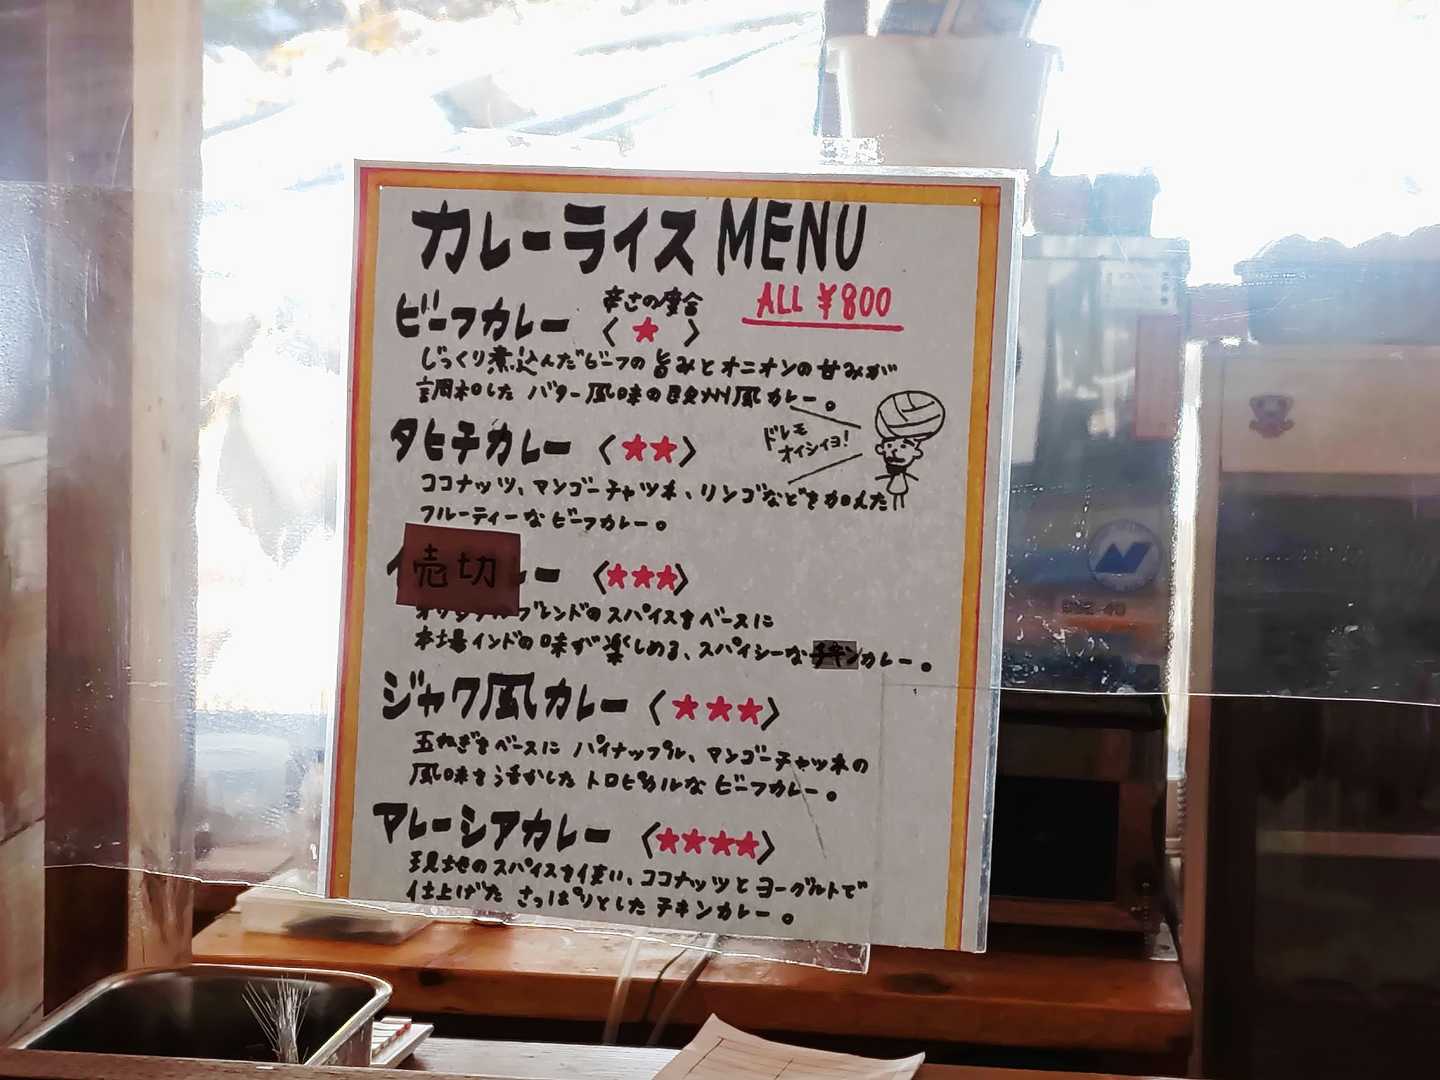 カレーライス MENU
ALL ¥800
辛さの度合
ビーフカレー 〈★〉
じっくり煮込んだビーフの旨みとオニオンの甘みが
調和した バター風味の欧州風カレー。
ドレモ
オイシイヨ!
タヒチカレー 〈★★〉
ココナッツ、マンゴーチャツネ、リンゴなどを加えた
フルーティーなビーフカレー。
売切
レー 〈★★★〉
オリジナルブレンドのスパイスをベースに
本場インドの味が楽しめる、スパイシーなチキンカレー。
ジャワ風カレー 〈★★★〉
玉ねぎをベースに パイナップル、マンゴーチャツネの
風味を活かした トロピカルな ビーフカレー。
マレーシアカレー 〈★★★★〉
現地のスパイスを使い、ココナッツとヨーグルトで
仕上げた さっぱりとした チキンカレー。